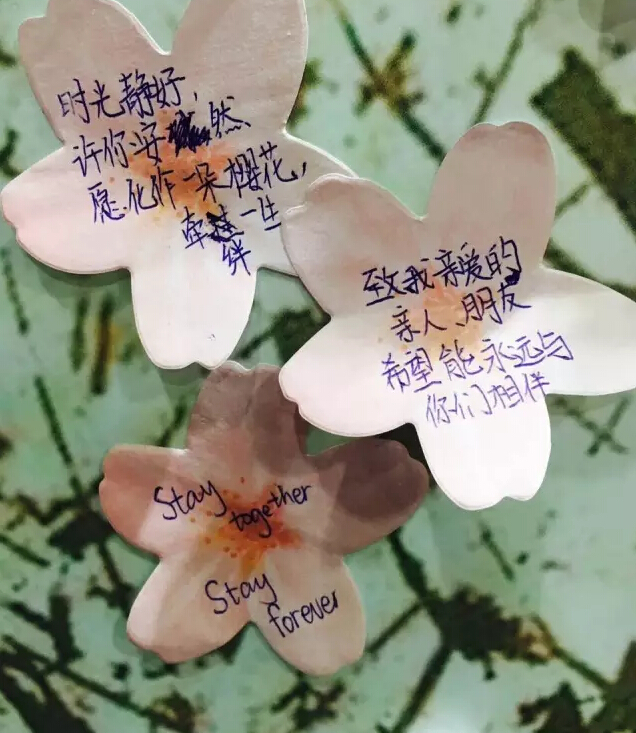 时光静好,
许你安然
愿化作一朵樱花,
牵一生
绊
致我亲爱的
亲人、朋友
希望能永远与
你们相伴
Stay
together
Stay
forever